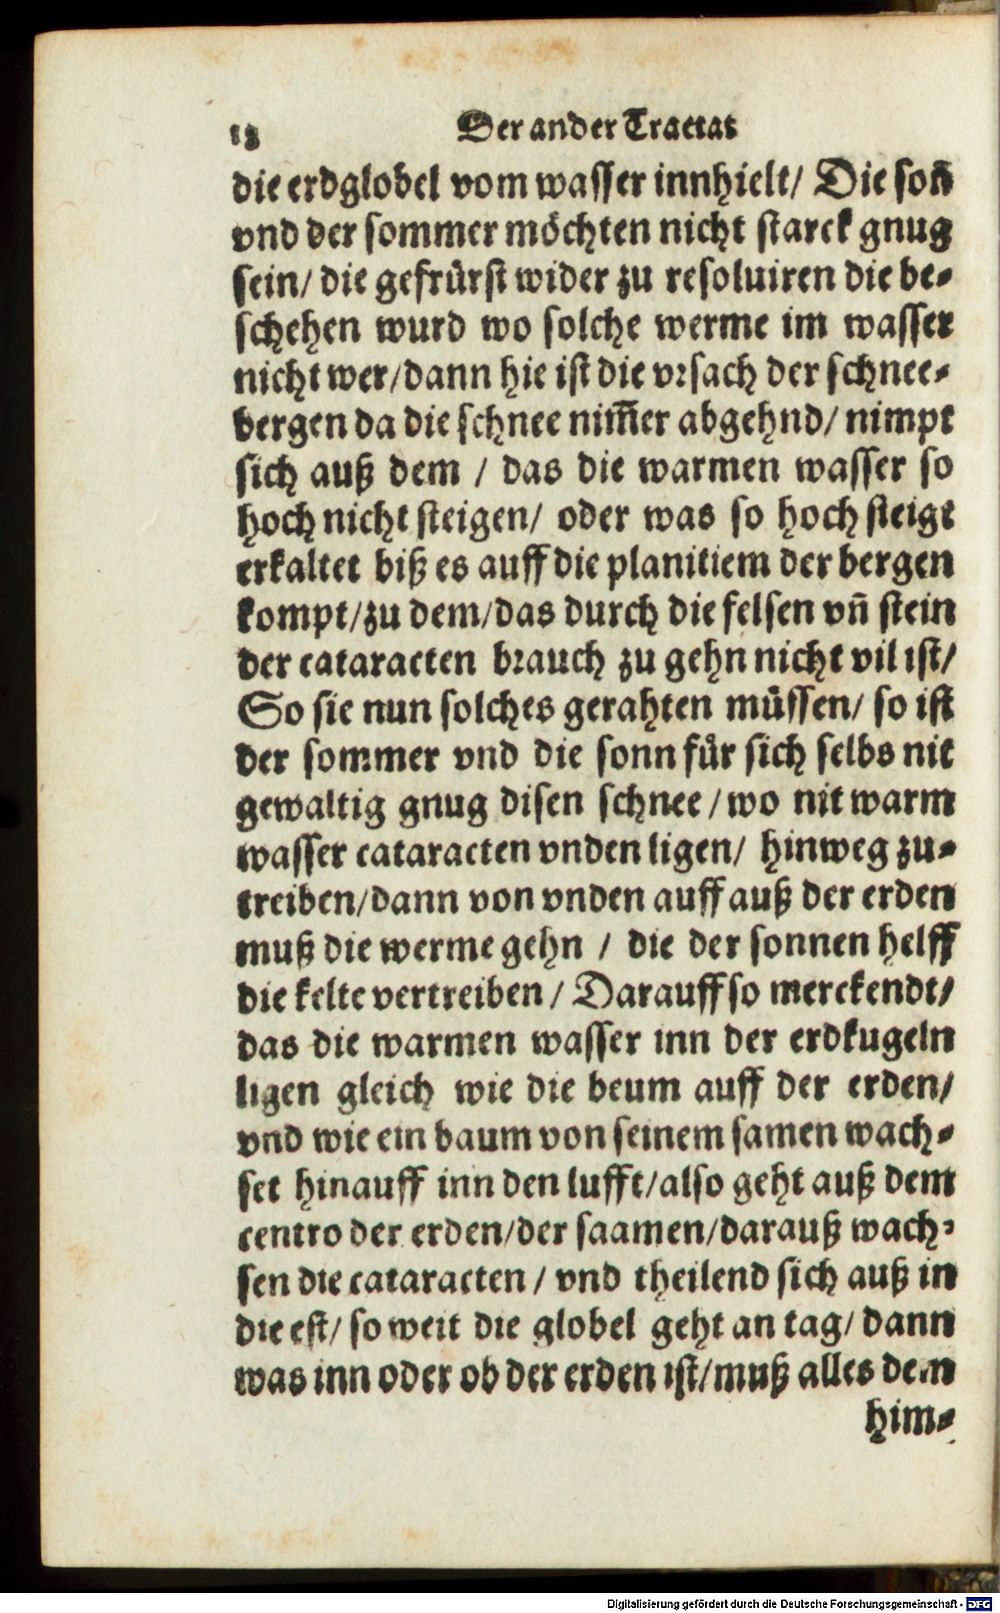 18 Der ander Tractat
die erdglobel vom wasser innhielt/ Die soñ
vnd der sommer möchten nicht starck gnug
sein/ die gefrürst wider zu resoluiren die be-
schehen wurd wo solche werme im wasser
nicht wer/dann hie ist die vrsach der schnee-
bergen da die schnee nim̃er abgehnd/ nimpt
sich auß dem / das die warmen wasser so
hoch nicht steigen/ oder was so hoch steigt
erkaltet biß es auff die planitiem der bergen
kompt/zu dem/das durch die felsen vñ stein
der cataracten brauch zu gehn nicht vil ist/
So sie nun solches gerahten müssen/ so ist
der sommer vnd die sonn für sich selbs nit
gewaltig gnug disen schnee /wo nit warm
wasser cataracten vnden ligen/ hinweg zu-
treiben/dann von vnden auff auß der erden
muß die werme gehn / die der sonnen helff
die kelte vertreiben / Darauff so merckendt/
das die warmen wasser inn der erdkugeln
ligen gleich wie die beum auff der erden/
vnd wie ein baum von seinem samen wach-
set hinauff inn den lufft/also geht auß dem
centro der erden/der saamen/darauß wach-
sen die cataracten / vnd theilend sich auß in
die est/ so weit die globel geht an tag/ dann
was inn oder ob der erden ist/muß alles dem
him-
Digitalisierung gefördert durch die Deutsche Forschungsgemeinschaft - DFG